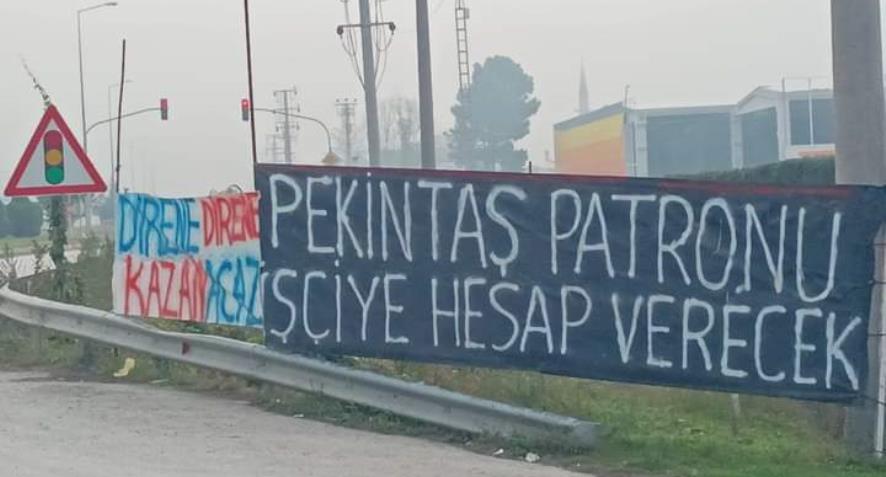 DİRENE DİRENE
KAZANACAZ
PEKİNTAŞ PATRONU
İŞÇİYE HESAP VERECEK